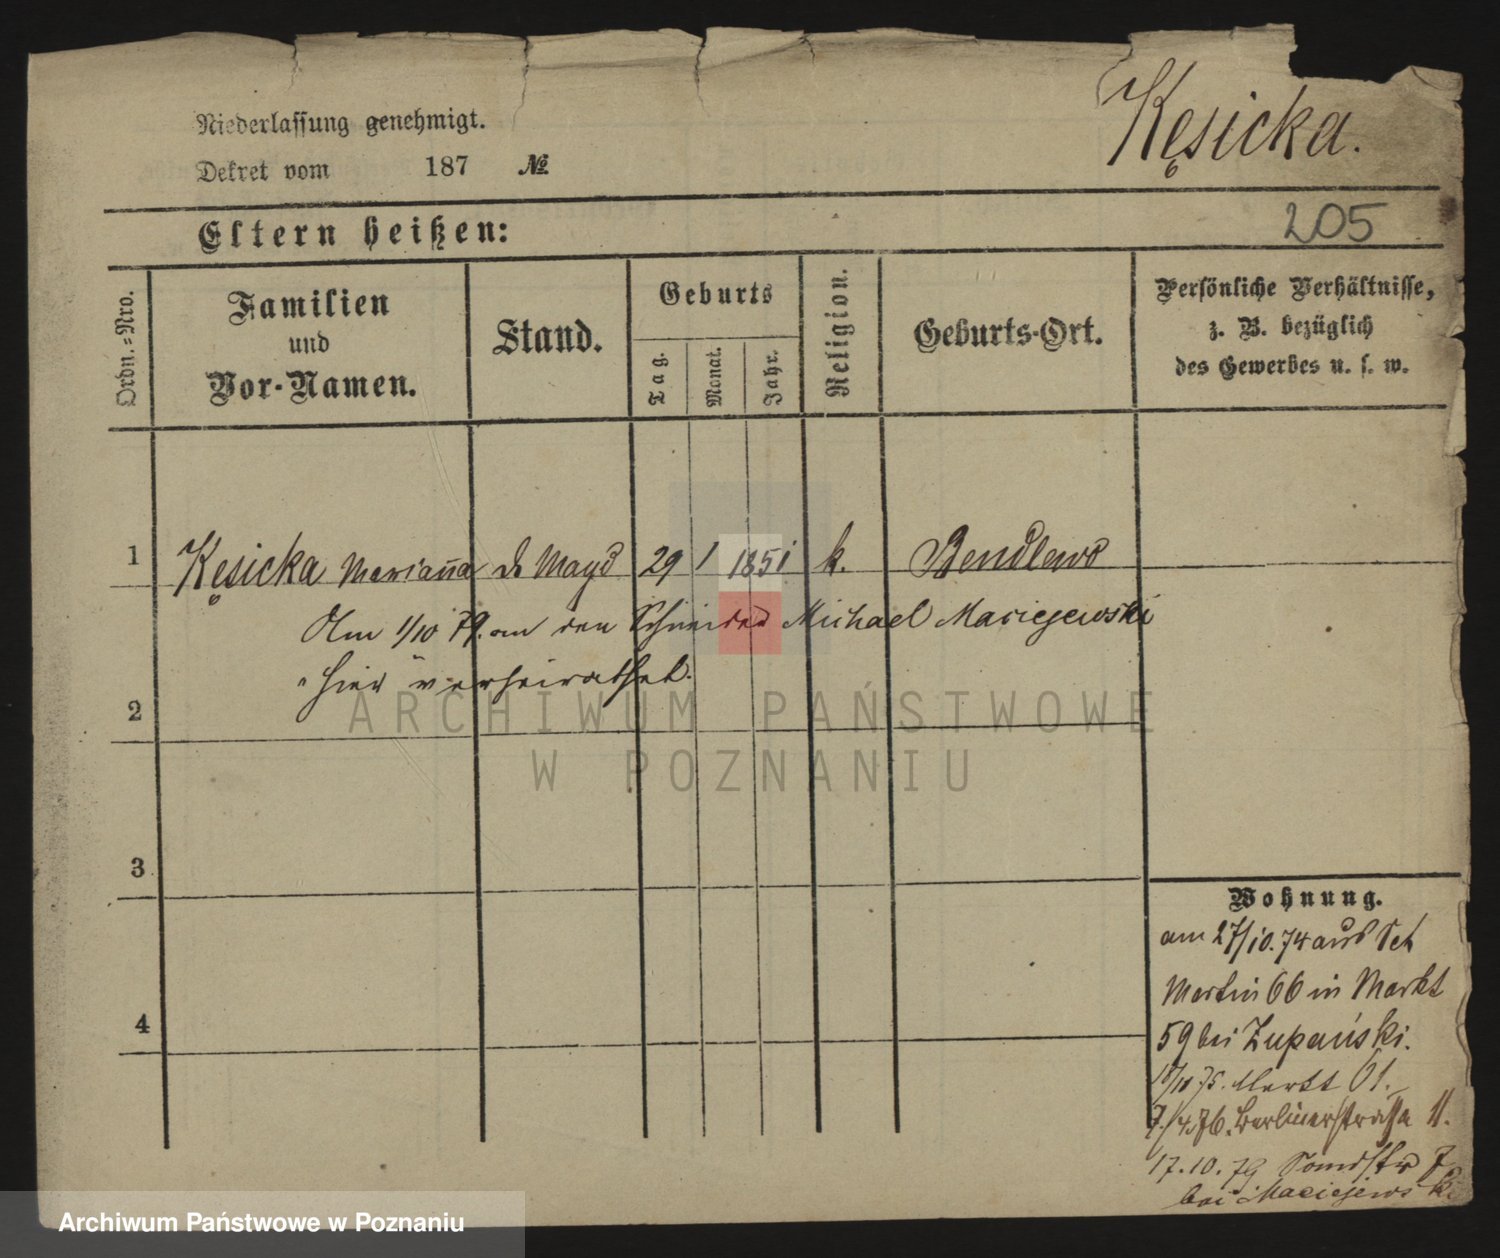 Niederlassung genehmigt.
Dekret vom 187 №
Kęsicka.
205
Eltern heißen:
Ordn.=Nro.
Familien
und
Vor-Namen.
Stand.
Geburts
Tag.
Monat.
Jahr.
Religion.
Geburts-Ort.
Persönliche Verhältnisse,
z. B. bezüglich
des Gewerbes u. s. w.
1 Kęsicka Marianna d. Magd 29 1 1851 k. Bendlewo
Am 1/10 79. an den Schneider Michael Maciejewski
hier verheirathet.
2
3
4
Wohnung.
am 27/10. 74 aus Sct
Martin 66 in Markt
59 bei Zupański.
75. Markt 61.
7./4.76. Berlinerstrasse 11.
17.10.79 7
bei Maciejewski
ARCHIWUM PAŃSTWOWE
W POZNANIU
Archiwum Państwowe w Poznaniu